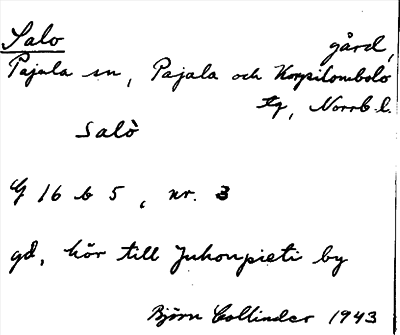 Salo gård,
Pajala sn, Pajala och Korpilombolo
tg, Norrb. l.
salò
G 16 b 5, nr. 3
gd, hör till Juhonpieti by
Björn Collinder 1943